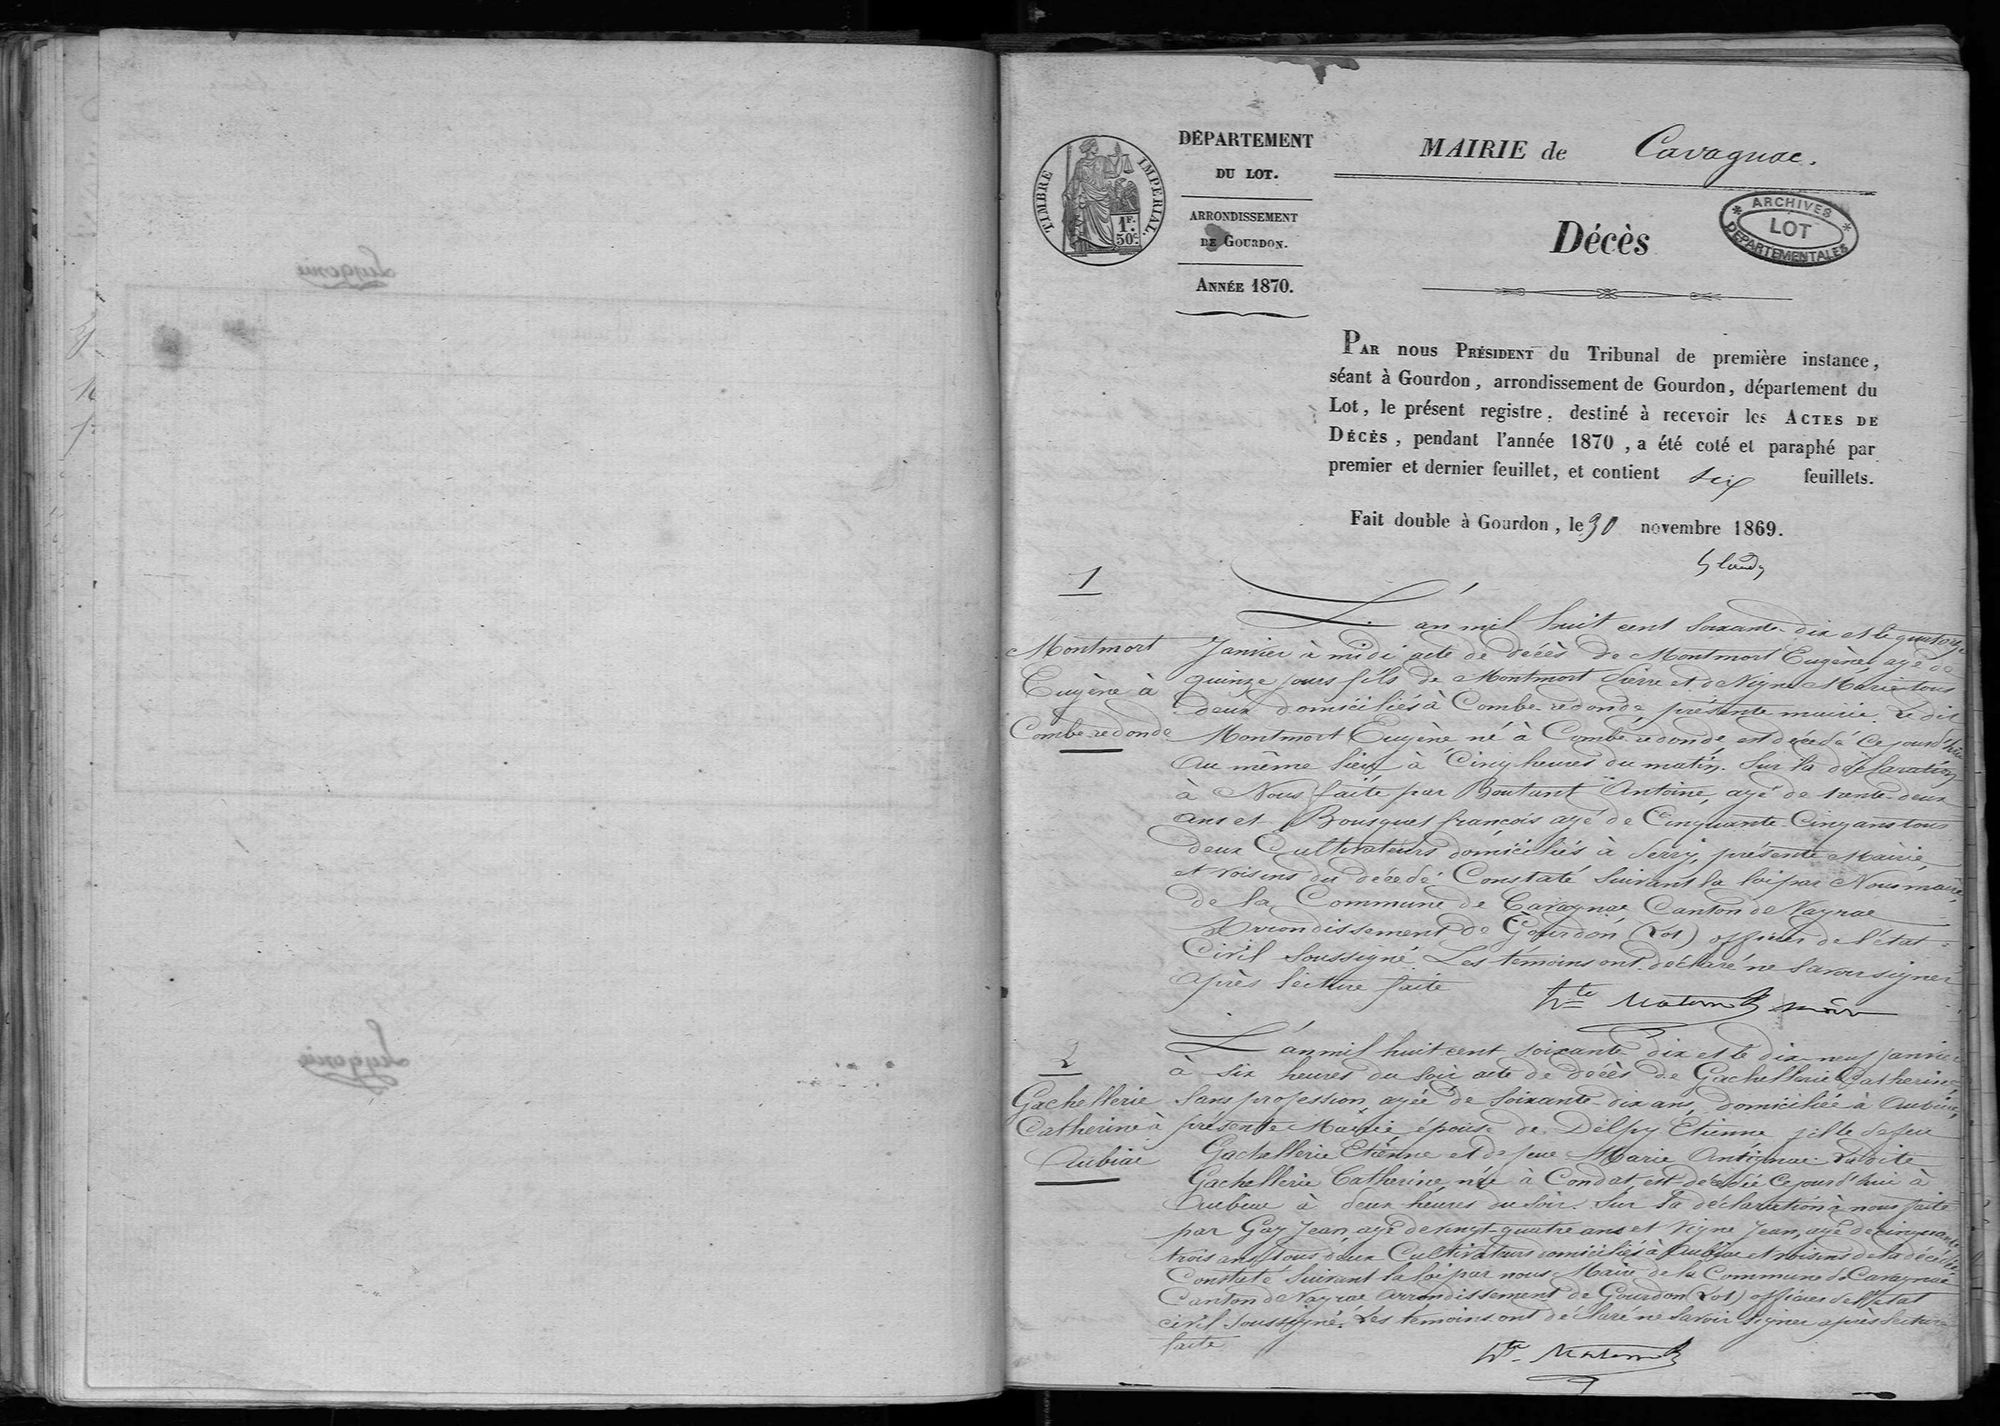 DÉPARTEMENT
DU LOT.
ARRONDISSEMENT
DE GOURDON.
ANNÉE 1870.
TIMBRE IMPERIAL.
1F.
50c.
MAIRIE de Cavagnac.
Décès
ARCHIVES
LOT
DEPARTEMENTALES
PAR nous PRÉSIDENT du Tribunal de première instance,
séant à Gourdon, arrondissement de Gourdon, département du
Lot, le présent registre, destiné à recevoir les ACTES DE
DÉCÈS, pendant l'année 1870, a été coté et paraphé par
premier et dernier feuillet, et contient six feuillets.
Fait double à Gourdon, le 30 novembre 1869.
1
Montmort
Eugène à
Combe-redonde
L'an mil huit cent soixante-dix et le quatorze
Janvier à midi acte de décès de Montmort Eugène, agé de
quinze jours fils de Montmort Pierre et de Vigne Marie tous
deux domiciliés à Combe-redonde, présente mairie. Le dit
Montmort Eugène né à Combe-redonde est décédé ce jourd'hui
au même lieu à Cinq heures du matin. Sur la déclaration
à Nous faite par Boutant Antoine, agé de trente-deux
ans et Bousquet françois agé de Cinquante-Cinq ans tous
deux Cultivateurs domiciliés à présente Mairie,
et voisins du décédé Constaté suivant la loi par Nous maire
de la Commune de Cavagnac Canton de Vayrac
Arrondissement de Gourdon (Lot) officier de l'état-
Civil soussigné. Les temoins ont déclaré ne savoir signer
après lecture faite
maire
2
Gachellerie
Catherine à
Aubiac
L'an mil huit cent soixante dix et le dix-neuf janvier
à six heures du soir acte de décès de Gachellerie Catherine
sans profession, agée de soixante dix ans, domiciliée à Aubiac,
présente Mairie épouse de Delpy Étienne fille de feu
Gachellerie Etienne et de feue Marie Antignac. La dite
Gachellerie Catherine née à Condat est décédée ce jourd'hui à
Aubiac à deux heures du soir. Sur la déclaration à nous faite
par Gay Jean, agé de vingt-quatre ans et Vigne Jean, agé de cinquante
trois ans tous deux Cultivateurs domiciliés à Aubiac et voisins de la décédée
Constaté suivant la loi par nous Maire de la Commune de Cavagnac
Canton de Vayrac Arrondissement de Gourdon (Lot) officier de l'état
civil soussigné. Les temoins ont déclaré ne savoir signer après lecture
faite